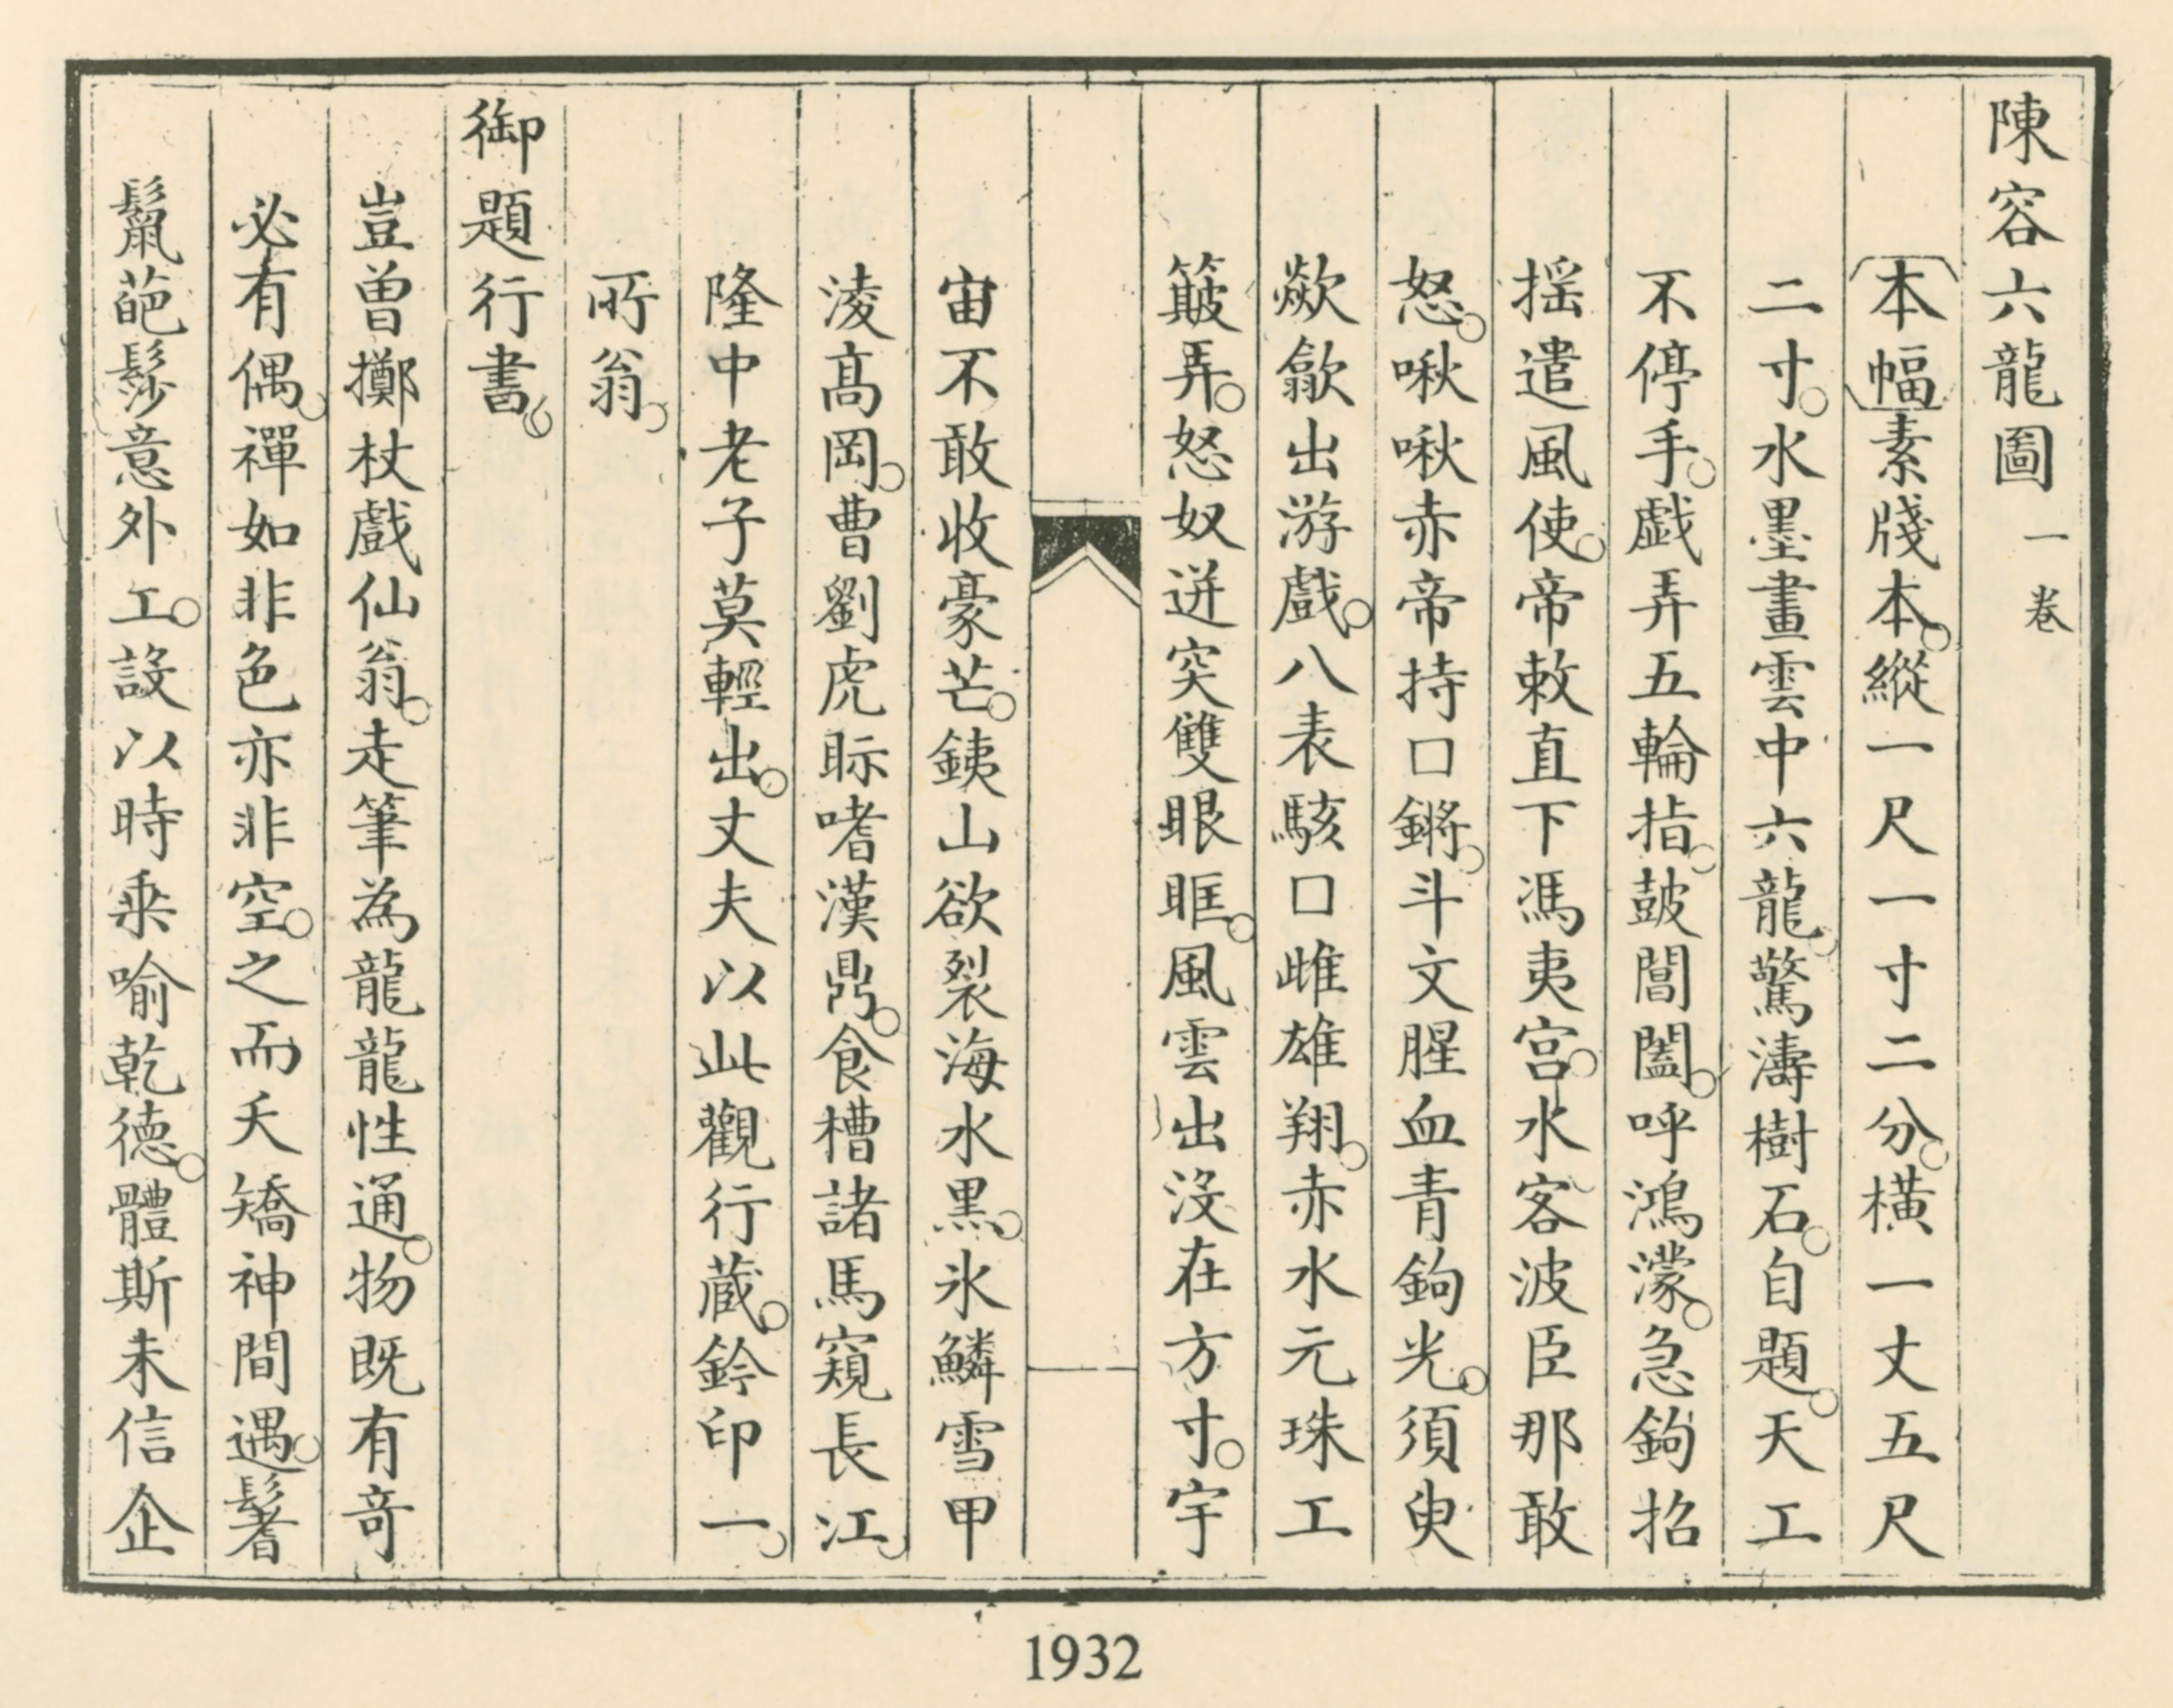 陳容六龍圖 一卷
本幅素牋本。縱一尺一寸二分。橫一丈五尺
二寸。水墨畫雲中六龍。驚濤樹石。自題。天工
不停手。戲弄五輪指。皷闔闢。呼鴻濛。急鉤招
搖遣風使。帝敕直下馮夷宮。水客波臣那敢
怒。啾啾赤帝持口鏘。斗文腥血青鉤光。須臾
歘歙出游戲。八表駭口雌雄翔。赤水元珠工
簸弄。怒奴迸突雙眼眶。風雲出沒在方寸。宇
宙不敢收豪芒。銕山欲裂海水黑。氷鱗雪甲
淩髙岡。曹劉虎眎嗜漢鼎。食槽諸馬窺長江。
隆中老子莫輕出。丈夫以此觀行藏。鈐印一。
所翁。
御題行書。
豈曾擲杖戲仙翁。走筆為龍龍性通。物既有奇
必有偶。禪如非色亦非空。之而夭矯神間遇。鬐
鬣葩髿意外工。設以時乘喻乾德。體斯未信企
1932